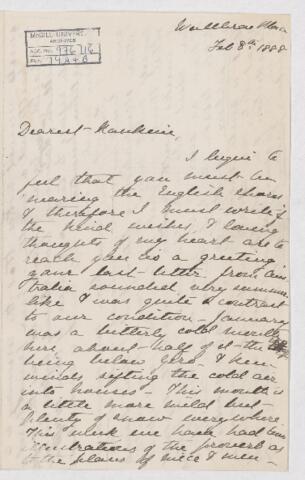 McGILL UNIVERSITY
ARCHIVES
ACC. NO. 976/16
REF. 14 A+B
Feb 8th 1888
Dearest Rankine,
I begin to
feel that you must be
nearing the English shores
& therefore I must write if
the kind wishes, & loving
thoughts of my heart are to
reach you as a greeting
your last letter from Aus
tralia sounded very summer
like & was quite a contrast
to our condition - January
was a bitterly cold month
here, about half of it the
being below zero, &
winds sifting the cold air
into houses - This month is
a little more mild but
plenty of snow everywhere.
This week we have had
illustrations of the proverb as
to the plans of mice & men -